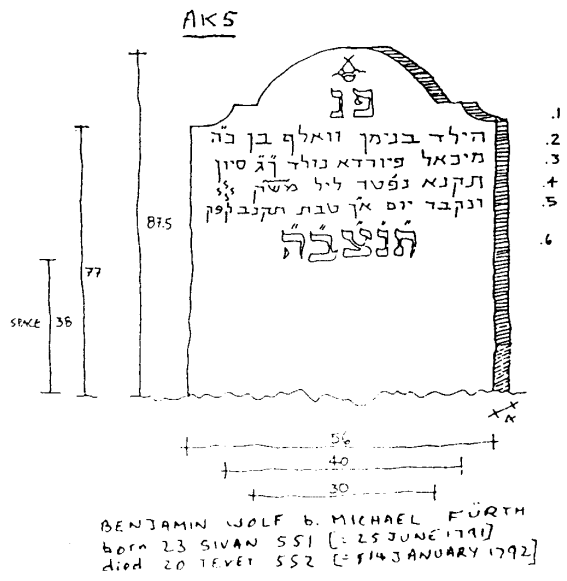 AK5
פנ .1
הילד בנימן וואלף בן כ"ה .2
מיכאל פיורדא נולד ך"ג סיון .3
תקנא נפטר ליל מש"ק .4
ונקבר יום א"ך טבת תקנב לפק .5
תנצבה .6
87.5
77
SPACE 38
56
40
30
BENJAMIN WOLF b. MICHAEL FÜRTH
born 23 SIVAN 551 [= 25 JUNE 1791]
died 20 TEVET 552 [= 14 JANUARY 1792]